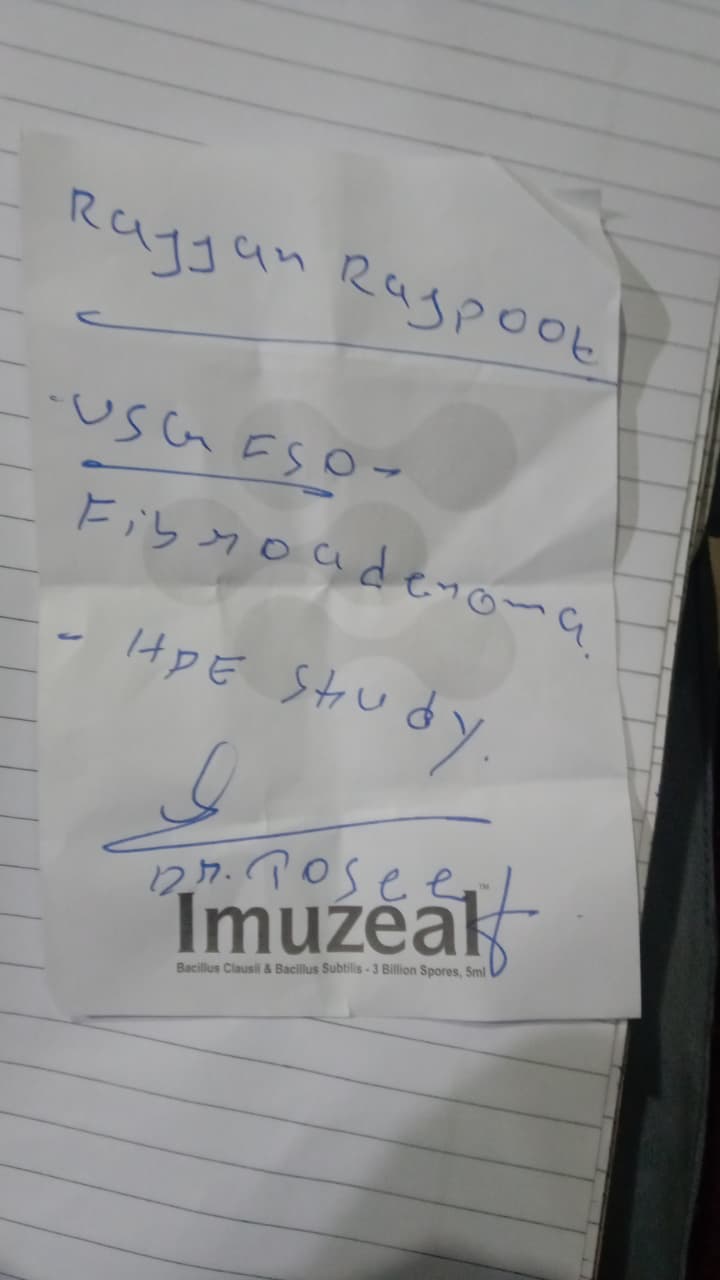 Rayyan Raypoot
- USG ESO -
Fibroadenoma.
- HPE Study.
Dr. Toseef
Imuzeal™
Bacillus Clausii & Bacillus Subtilis - 3 Billion Spores, 5ml